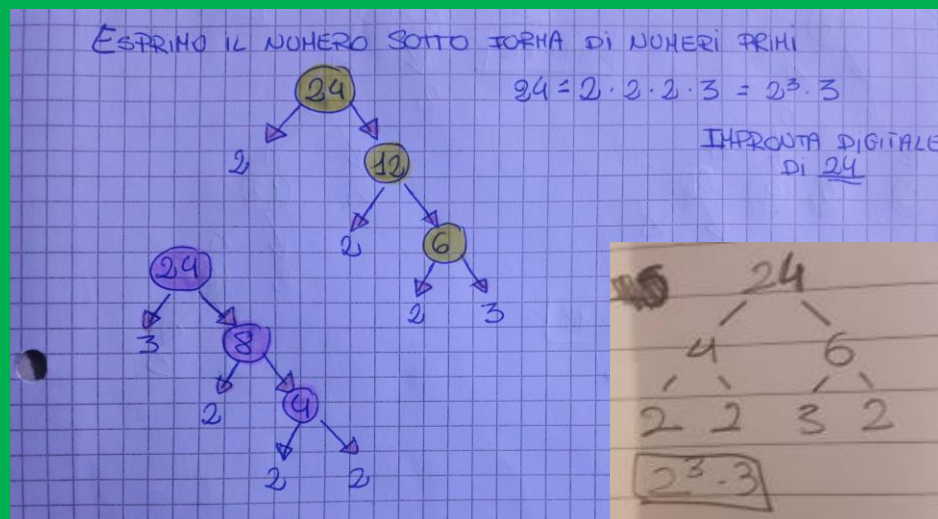 ESPRIMO IL NUMERO SOTTO FORMA DI NUMERI PRIMI
24 = 2 · 2 · 2 · 3 = 2³ · 3
IMPRONTA DIGITALE
DI 24
24
2
12
2
6
2 3
24
3
8
2
4
2 2
24
4 6
2 2 3 2
2³ · 3